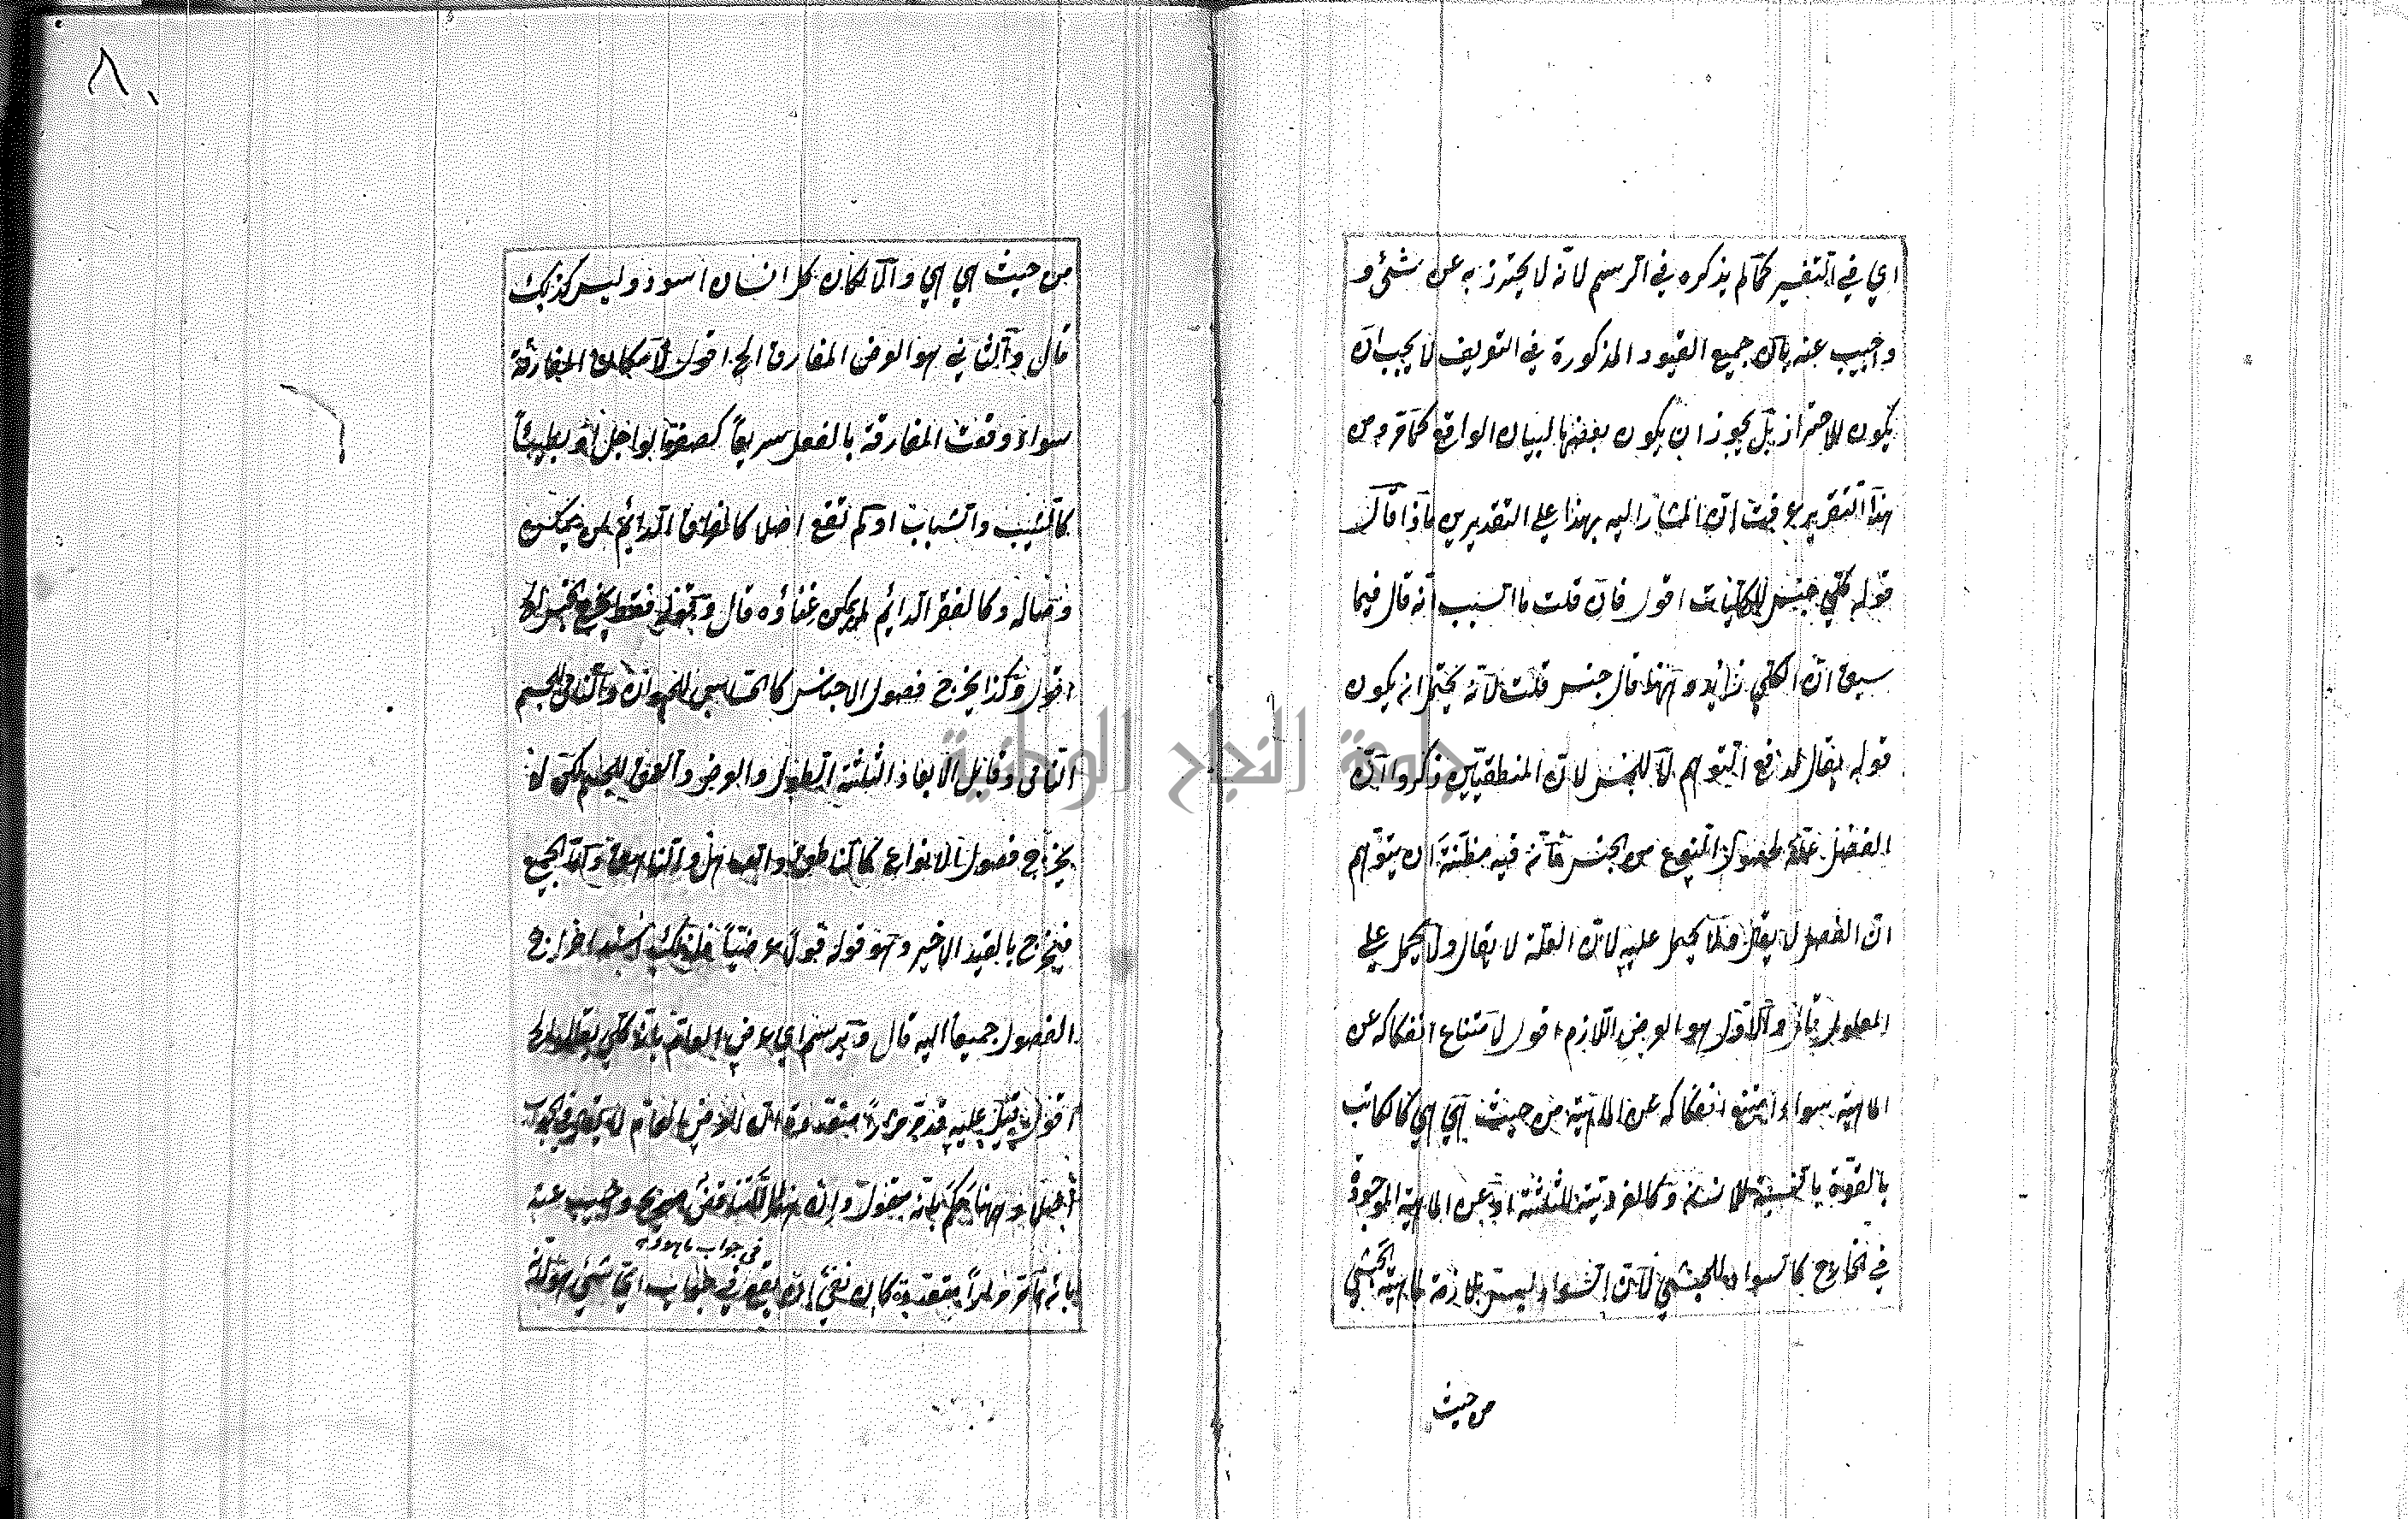 اي في التفسير كما لم يذكره في الرسم لانه لا يحترز به عن شئ و
واجيب عنه بان جميع القيود المذكورة في التعريف لا يجب ان
يكون للاحتراز بل يجوز ان يكون بعضها لبيان الواقع كما مر ومن
هذا التقرير عرفت ان المشار اليه بهذا على التقديرين ماذا قال
قوله كلي جنس للكليات اقول فان قلت ما السبب انه قال فيما
سبق ان الكلي زايد وههنا قال جنس قلت لانه يحتمل انه يكون
قوله يقال لدفع التوهم لا للجنس لان المنطقيين ذكروا ان
الفصل علة لحصول النوع من الجنس فانه فيه مظنة ان يتوهم
ان الفصول لا يقال ولا يحمل عليه لان العلة لا يقال ولا يحمل على
المعلول قال والاول هو العرض اللازم اقول لامتناع انفكاكه عن
الماهية سواء امتنع انفكاكه عن الماهية من حيث هي هي كالكاتب
بالقوة بالنسبة للانسان وكالفردية للثلثة او عن الماهية الموجودة
في الخارج كالسواد للحبشي لان السواد ليس بلازمة لماهية الحبشي
من حيث
٨٠
من حيث هي هي والا لكان كل انسان اسود وليس كذلك
قال والثاني هو العرض المفارق الخ اقول لامكان المفارقة
سواء وقعت المفارقة بالفعل سريعا كصفرة الواجل او بطيئا
كالشيب والشباب او لم تقع اصلا كالفراق الدائم لمن يمكن
وصاله وكالفقر الدايم لمن يمكن غناؤه قال وبقوله فقط يخرج الجنس الخ
اقول وكذا يخرج فصول الاجناس كالحساس للحيوان والنامي للجسم
النامي وقابل الابعاد الثلثة الطول والعرض والعمق للجسم لكن لا
يخرج فصول الانواع كالناطق والصاهل والناهق والجميع
فيخرج بالقيد الاخير وهو قوله قولا عرضيا فلذلك اسند اخراج
الفصول جميعا اليه قال ويرسم اي عرض العام بانه كلي يقال الخ
اقول قيل عليه قد مر مرارا متعددة ان العرض العام لا يقع في الجواب
اصلا وههنا حكم بانه مقول وان هذا لتناقض صريح واجيب عنه
في جواب ما هو وفي
بانه ما مر مرارا متعددة كان نفي ان يقع في جواب اي شئ هو لانه
جامعة النجاح الوطنية